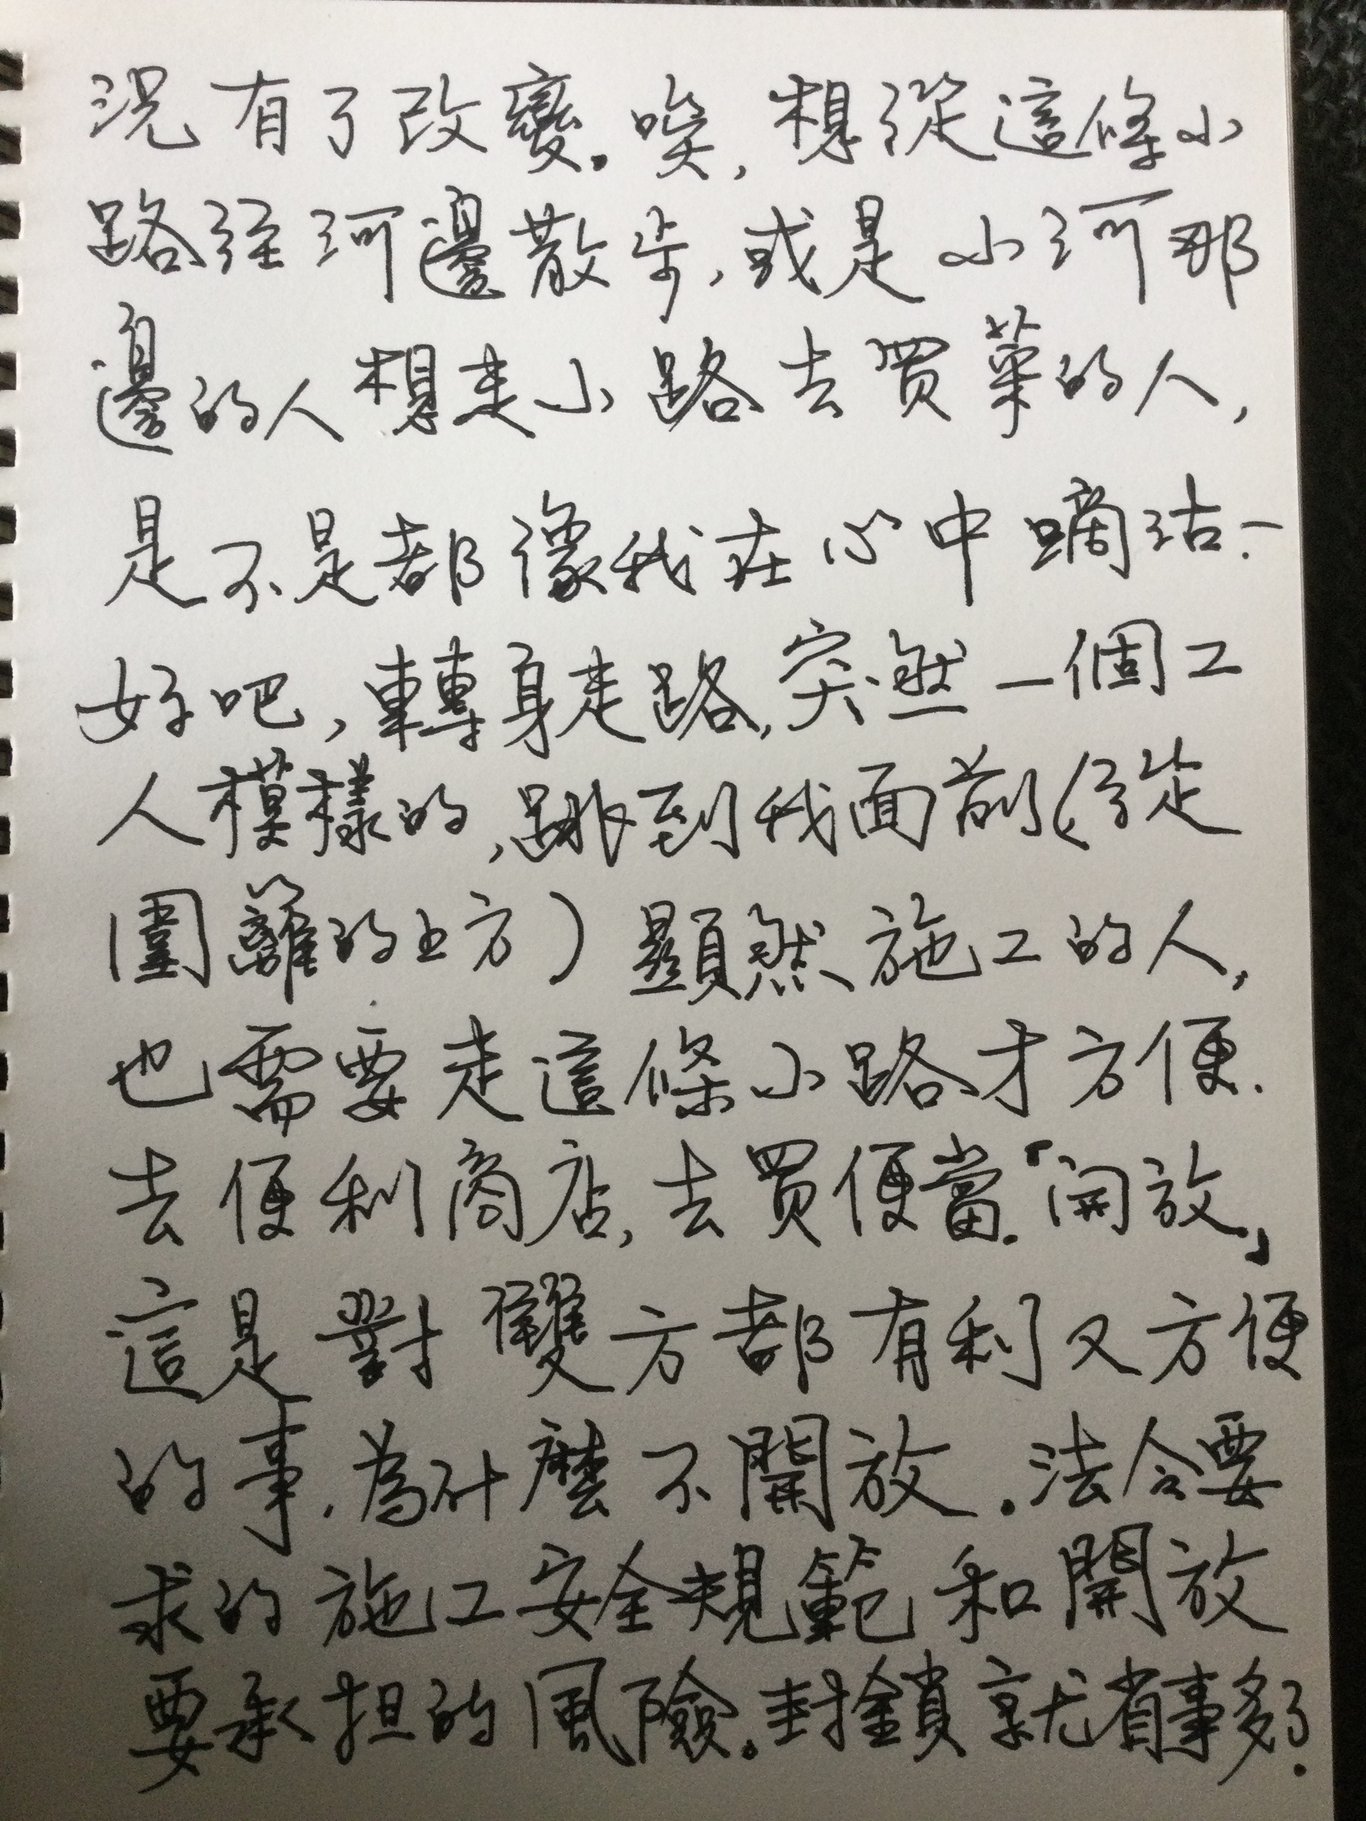 況有了改變。唉,想從這條小
路經河邊散步,或是小河那
邊的人想走小路去買菜的人,
是不是都像我在心中嘀沽:
好吧,轉身走路,突然一個工
人模樣的,跳到我面前(從
圍籬的上方)顯然施工的人,
也需要走這條小路才方便.
去便利商店,去買便當.「開放」
這是對雙方都有利又方便
的事.為什麼不開放.法令要
求的施工安全規範和開放
要承担的風險。封鎖就省事多了.